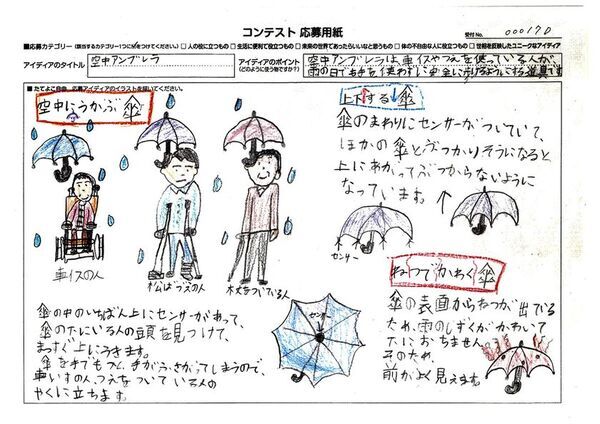 コンテスト 応募用紙
受付No. 00017D
■応募カテゴリー(該当するカテゴリー1つに✓をつけてください。) □人の役に立つもの □生活に便利で役立つもの □未来の世界であったらいいなと思うもの □体の不自由な人に役立つもの □世相を反映したユニークなアイディア
アイディアのタイトル
空中アンブレラ
アイディアのポイント
(どのように使う物ですか?)
空中アンブレラは、車イスやつえを使っている人が、
雨の日でも手を使わずに安全に歩けるようにする道具です
■たてよこ自由。応募アイディアのイラストをお描いてください。
空中にうかぶ傘
車イスの人
松ばつえの人
杖をついている人
傘の中のいちばん上にセンサーがあって、
傘の下にいる人の頭を見つけて、
まっすぐ上にうきます。
傘を手でもつと、手がふさがってしまうので、
車いすの人、つえをついている人の
やくに立ちます。
センサー
上下する傘
傘のまわりにセンサーがついていて、
ほかの傘とぶつかりそうになると
上にあがってぶつからないように
なっています。
センサー
ねつでかわく傘
傘の表面からねつが出ている
ため、雨のしずくがかわいて
下におちません。
そのため、
前がよく見えます。